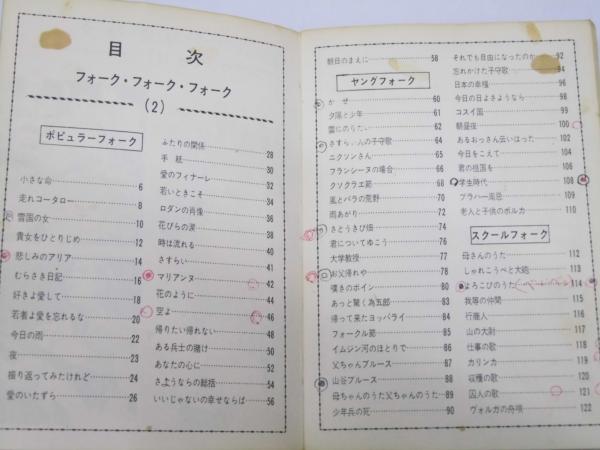 目次
フォーク・フォーク・フォーク
(2)
ポピュラーフォーク
小さな命 6
走れコータロー 8
雪国の女 10
貴女をひとりじめ 12
悲しみのアリア 14
むらさき日記 16
好きよ愛して 18
若者よ愛を忘れるな 20
今日の雨 22
夜 23
振り返ってみたけれど 24
愛のいたずら 26
ふたりの関係 28
手紙 30
愛のフィナーレ 32
若いときこそ 34
ロダンの肖像 36
花びらの涙 38
時は流れる 40
さすらい 41
マリアンヌ 42
花のように 44
空よ 46
帰りたい帰れない 48
ある兵士の賭け 50
あなたの心に 52
さようならの総括 54
いいじゃないの幸せならば 56
朝日のまえに 58
ヤングフォーク
かぜ 60
夕陽と少年 61
雲にのりたい 62
さすらい人の子守歌 64
ニクソンさん 65
フランシーヌの場合 66
クソクラエ節 68
風とバラの荒野 70
雨あがり 72
さとうきび畑 74
君についてゆこう 76
大学教授 77
お父帰れや 78
嘆きのボイン 80
あっと驚く為五郎 83
帰って来たヨッパライ 84
フォークル節 85
イムジン河のほとりで 86
父ちゃんブルース 87
山谷ブルース 88
母ちゃんのうた父ちゃんのうた 89
少年兵の死 90
それでも自由になったのか 92
忘れかけた子守歌 94
日本の幸福 96
今日の日よさようなら 98
コスイ国 99
朝昼夜 100
あるおっさん云いはった 102
今日をこえて 104
君の祖国を 106
学生時代 108
プラハー哀愁 109
老人と子供のポルカ 110
スクールフォーク
母さんのうた 112
しゃれこうべと大砲 113
よろこびのうた 114
我等の仲間 115
行商人 116
山の大尉 117
仕事の歌 118
カリンカ 119
収穫の歌 120
囚人の歌 121
ヴォルガの舟唄 122